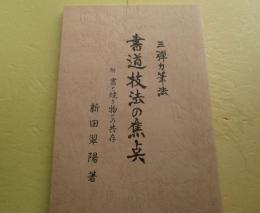 三弾力筆法
書道技法の焦点
附 書と焼き物との共存
新田翠陽著